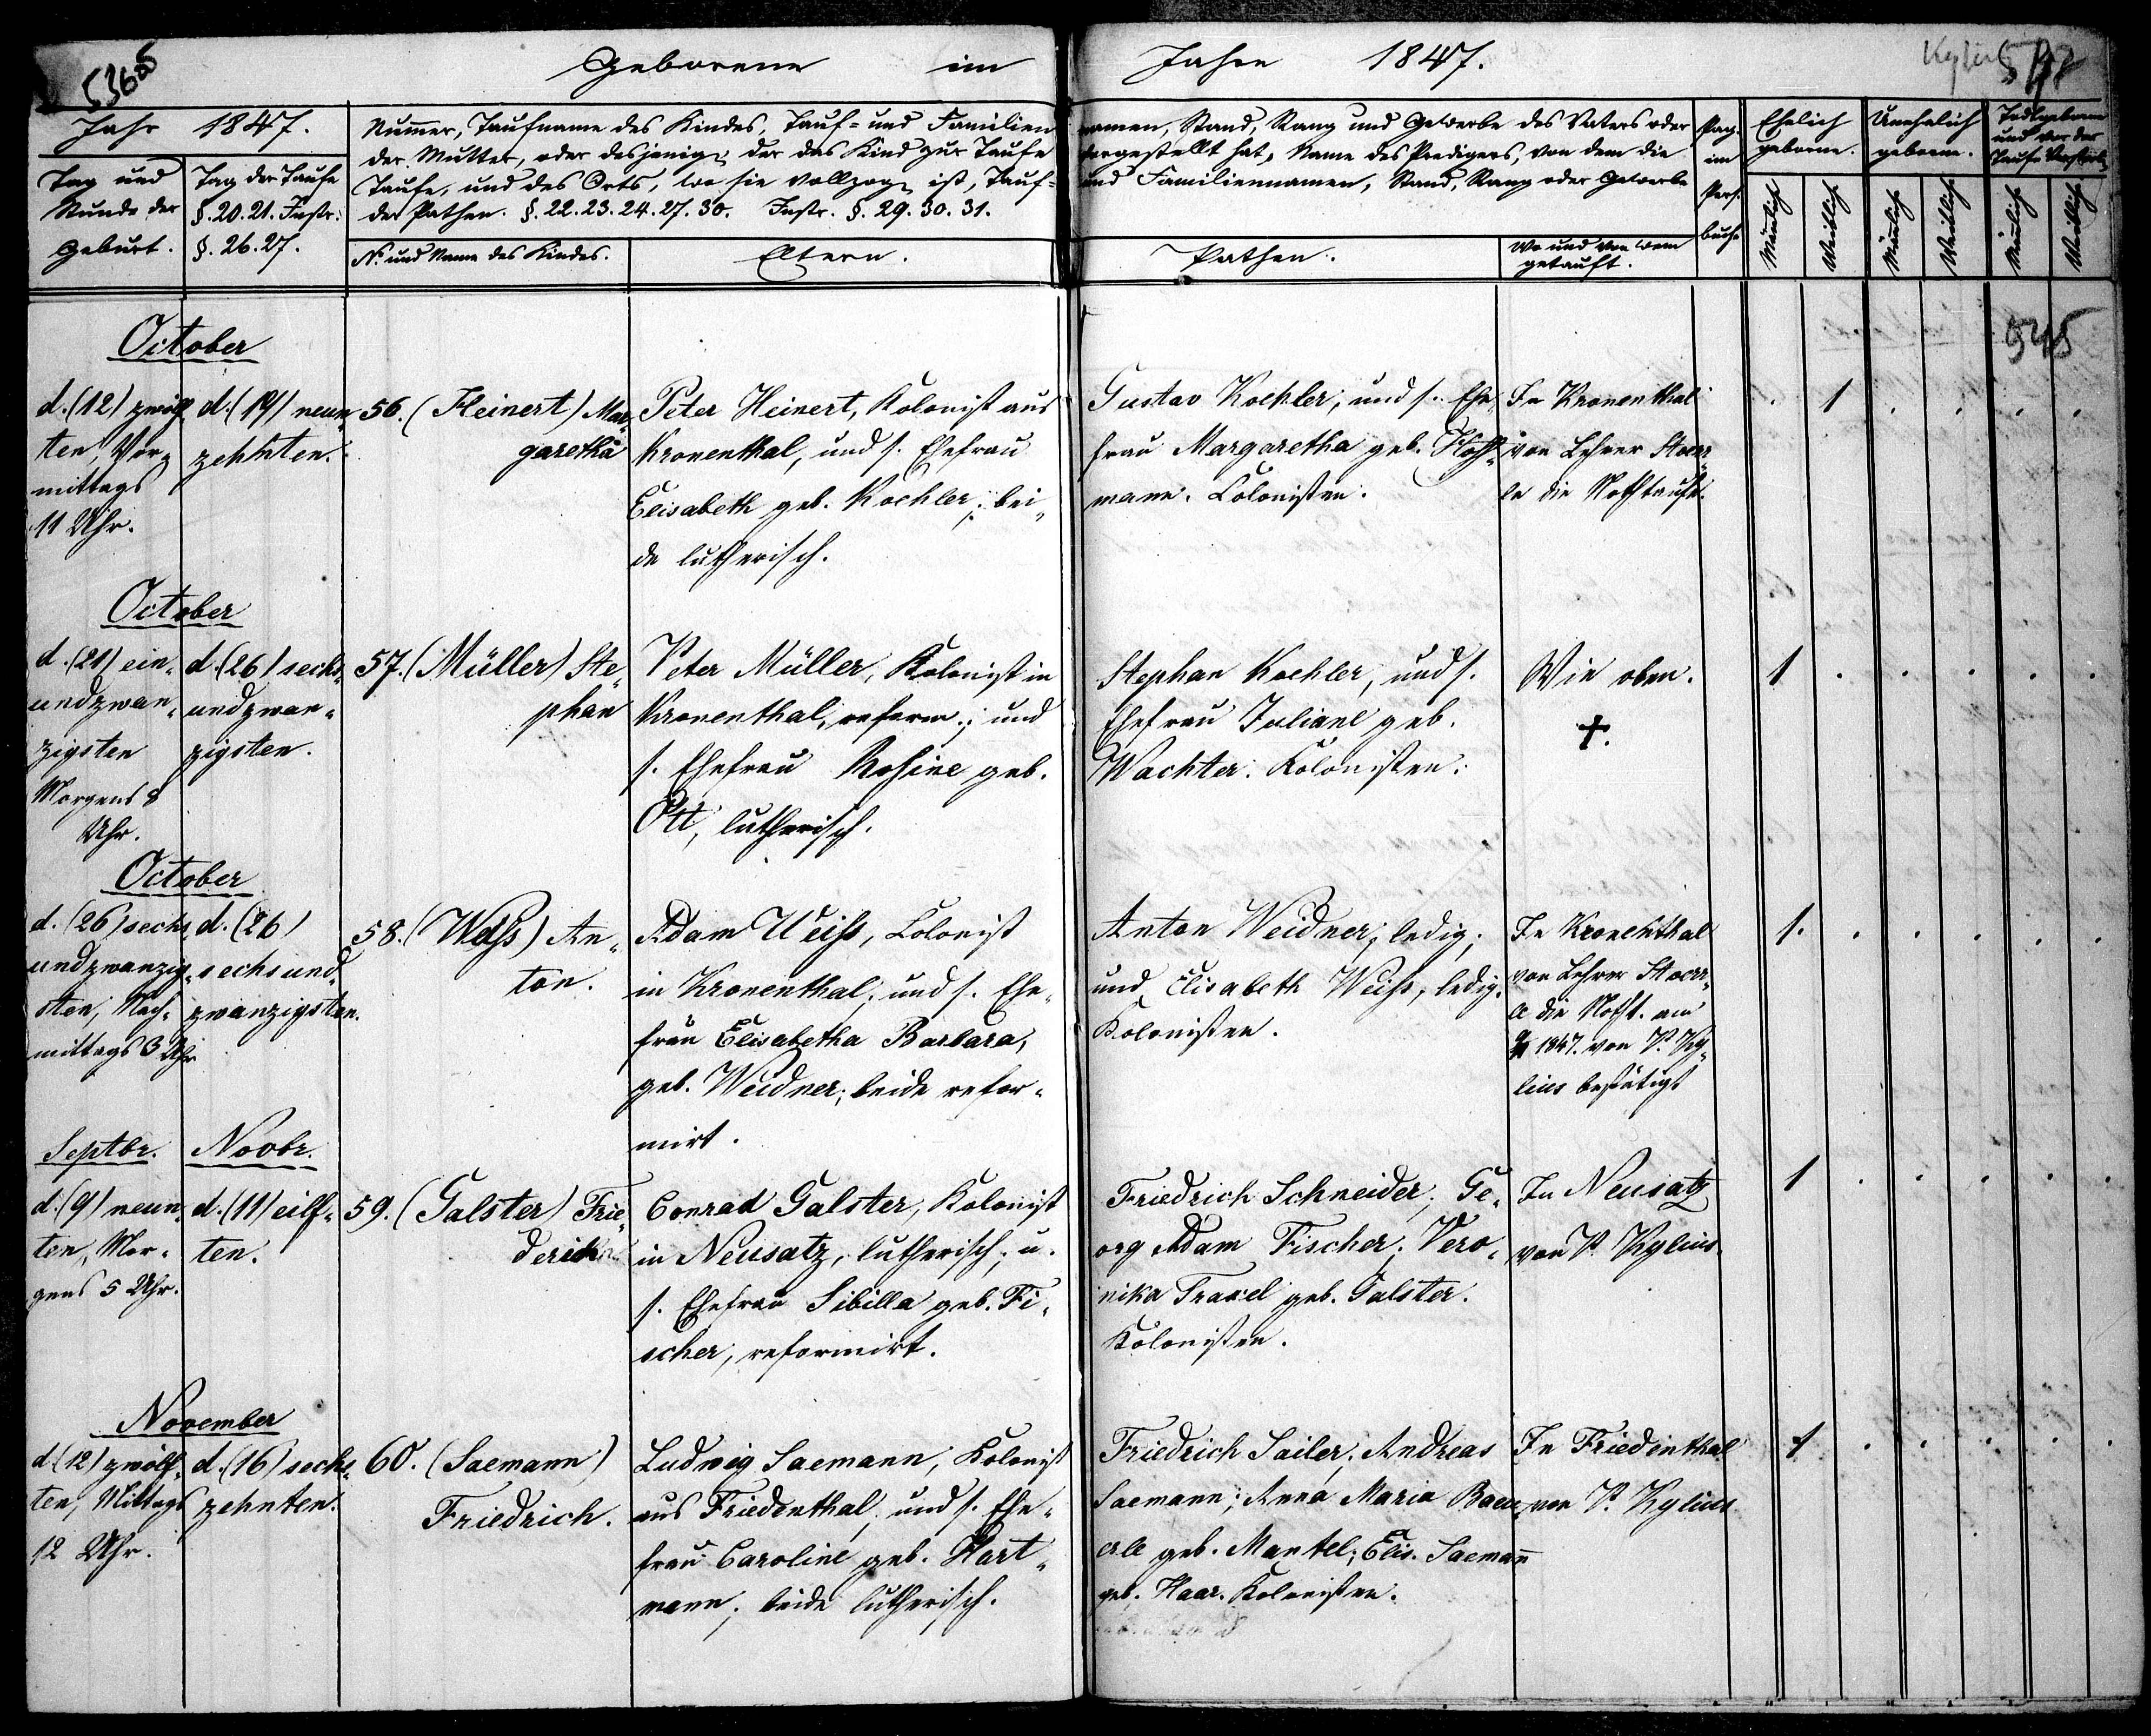 Geborene im Jahre 1847.
Jahr 1847.
Tag und
Stunde der
Geburt.
Tag der Taufe
§. 20. 21. Instr.
§. 26. 27.
Numer, Taufname des Kindes, Tauf- und Familien
der Mutter, oder desjenigen der das Kind zur Taufe
Taufe, und des Orts, wo sie vollzogen ist, Tauf-
der Pathen. §. 22. 23. 24. 27. 30. Instr. §. 29. 30. 31.
No. und Name des Kindes.
Eltern.
namen, Stand, Rang und Gewerbe des Vaters oder
vorgestellt hat, Name des Predigers, von dem die
und Familiennamen, Stand, Rang oder Gewerbe
Pathen.
Wo und von wem
getauft.
Pag.
im
Pers.
buch.
Ehelich
geborene.
Unehelich
geborene.
Todtgeborene
und vor der
Taufe Verstorb.
Mänlich
Weiblich
Mänlich
Weiblich
Mänlich
Weiblich
545
October
d. (12) zwölf-
ten, Vor-
mittags
11 Uhr.
d. (19) neun-
zehnten.
56. (Heinert) Mar-
garetha
Peter Heinert, Kolonist aus
Kronenthal, und s. Ehefrau
Elisabeth geb. Koehler; bei-
de lutherisch.
Gustav Koehler, und s. Ehe-
frau Margaretha geb. Hoff-
mann. Colonisten.
In Kronenthal
von Lehrer Stoer-
le die Nothtaufe.
1
October
d. (21) ein-
undzwan-
zigsten
Morgens 8
Uhr.
d. (26) sechs-
undzwan-
zigsten.
57. (Müller) Ste-
phan
Peter Müller, Kolonist in
Kronenthal, reform.; und
s. Ehefrau Rosine geb.
Ott, lutherisch.
Stephan Koehler, und s.
Ehefrau Juliane geb.
Wachter. Kolonisten.
Wie oben.
†.
1
October
d. (26) sechs-
undzwanzig-
sten, Nach-
mittags 3 Uhr
d. (26)
sechsund-
zwanzigsten.
58. (Weiss) An-
ton.
Adam Weiss, Colonist
in Kronenthal; und s. Ehe-
frau Elisabetha Barbara,
geb. Weidner; beide refor-
mirt.
Anton Weidner; ledig;
und Elisabeth Weiss, ledig.
Kolonisten.
In Kronenthal
von Lehrer Stoer-
le die Notht. am
1847. von P. Ky-
lius bestätigt
1.
Septbr.
d. (9) neun-
ten, Mor-
gens 5 Uhr.
Novbr.
d. (11) eilf-
ten.
59. (Galster) Frie-
derich
Conrad Galster, Kolonist
in Neusatz, lutherisch; u.
s. Ehefrau Sibilla geb. Fi-
scher, reformirt.
Friedrich Schneider; Ge-
org Adam Fischer; Vero-
nika Traxel geb. Galster.
Kolonisten.
In Neusatz
von P. Kylius
1
November
d. (12) zwölf-
ten, Mittags
12 Uhr.
d. (16) sechs-
zehnten.
60. (Saemann)
Friedrich.
Ludwig Saemann, Kolonist
aus Friedenthal, und s. Ehe-
frau Caroline geb. Hart-
mann; beide lutherisch.
Friedrich Sailer; Andreas
Saemann; Anna Maria Baeu-
erle geb. Mantel; Elis. Saemann
geb. Haar. Kolonisten.
In Friedenthal
von P. Kylius
1